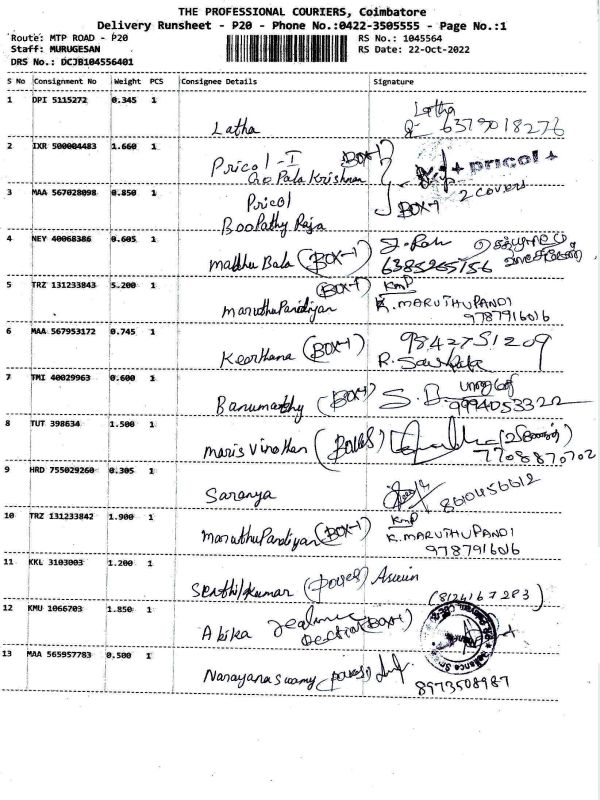 THE PROFESSIONAL COURIERS, Coimbatore
Delivery Runsheet - P20 - Phone No.:0422-3505555 - Page No.:1
Route: MTP ROAD - P20
RS No.: 1045564
Staff: MURUGESAN
RS Date: 22-Oct-2022
DRS No.: DCJB104556401
S No Consignment No Weight PCS Consignee Details Signature
1 DPI 5115272 0.345 1
Latha Latha 6379018276
2 IXR 500004483 1.660 1
Pricol - I BOX-1 pricol
Gopala Krishnan
3 MAA 567028098 0.850 1
Pricol BOX-1 2 covers
Boopathy Raja
4 NEY 40068386 0.605 1
Madhu Bala (BOX-1) 6385265156
5 TRZ 131233843 5.200 1
(BOX-1) KMP
MaruthuPandiyan K.MARUTHUPANDI
9787916016
6 MAA 567953172 0.745 1
Keerthana (BOX-1) 9842751209
7 TMI 40029963 0.600 1
Banumathy (BOX-1) 9994053322
8 TUT 398634 1.500 1
Maris Vinothan 7708870702
9 HRD 755029260 0.305 1
Saranya
10 TRZ 131233842 1.900 1
KMP
MaruthuPandiyan (BOX-1) K.MARUTHUPANDI
9787916016
11 KKL 3103003 1.200 1
Senthilkumar (8124167283)
12 KMU 1066703 1.850 1
13 MAA 565957783 0.500 1
Narayanaswamy 8973508987